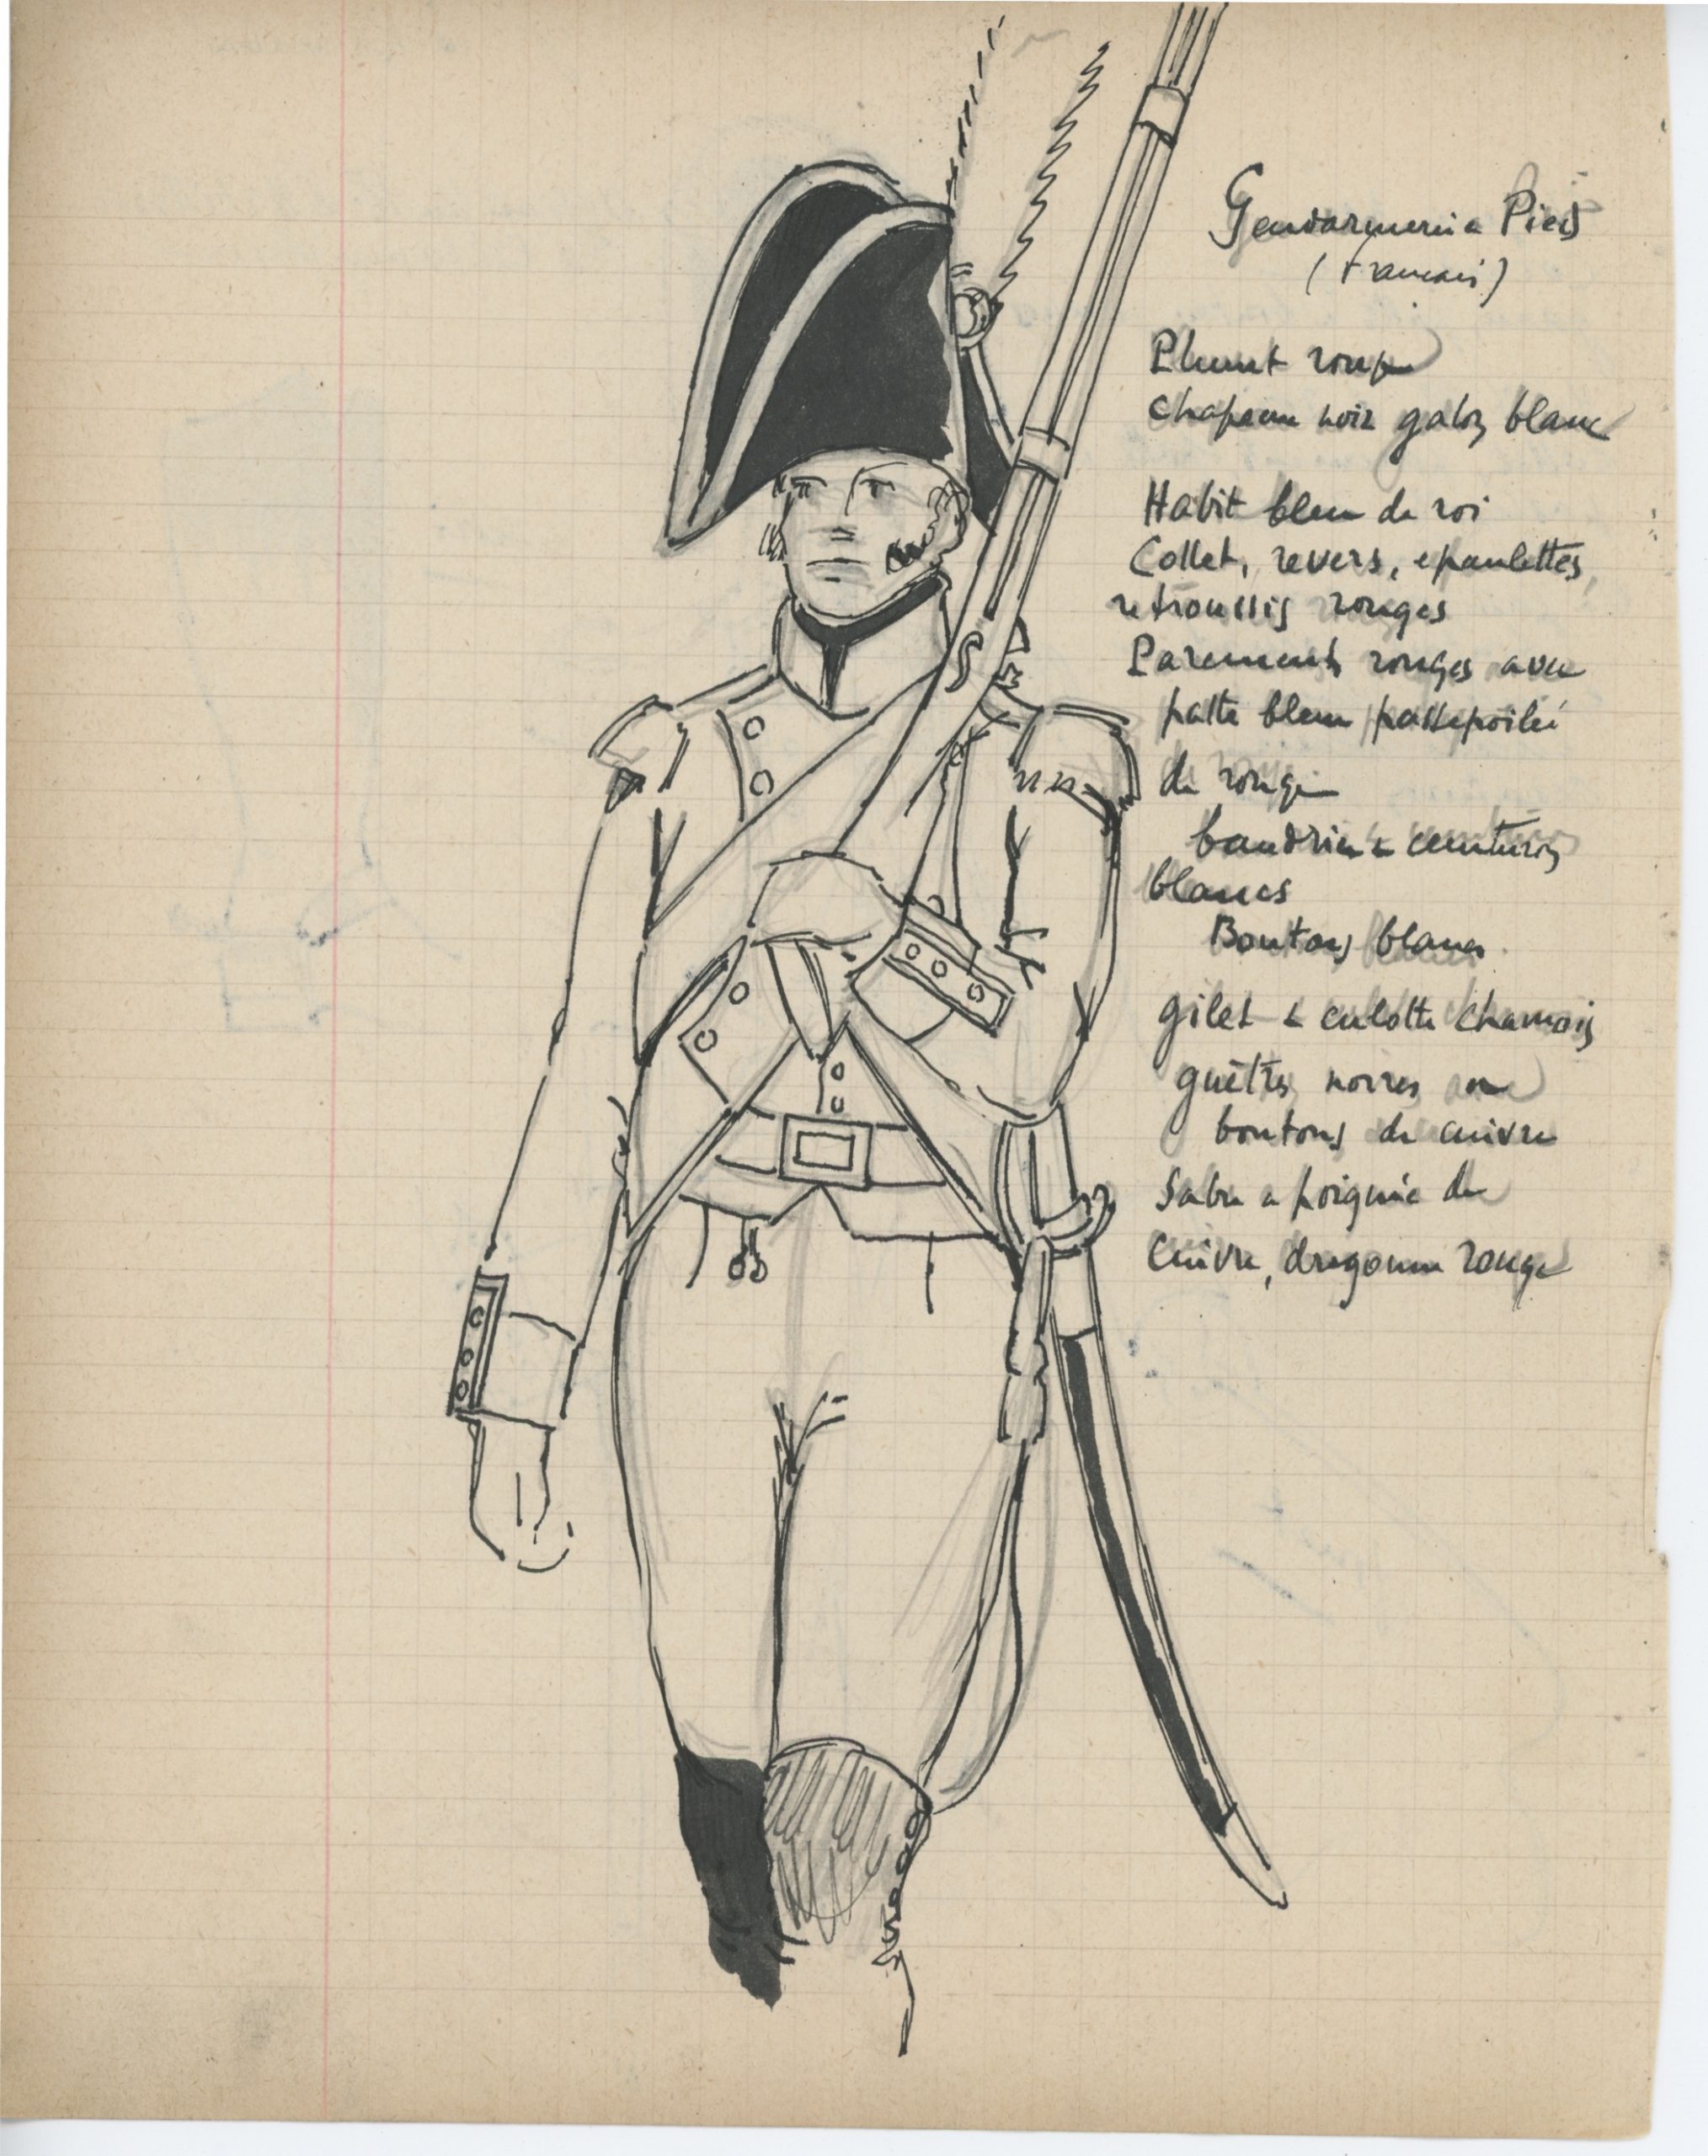 Gendarmerie a Pieds
(Francais)
Plumet rouge
Chapeau noir galon blanc
Habit bleu de roi
Collet, revers, epaulettes,
retroussis rouges
Parements rouges avec
patte bleu passepoilée
de rouge
baudrier & ceinturon
blancs
Boutons blancs
gilet & culotte chamois
guêtres noires
boutons de cuivre
Sabre a poignée de
Cuivre, dragonne rouge